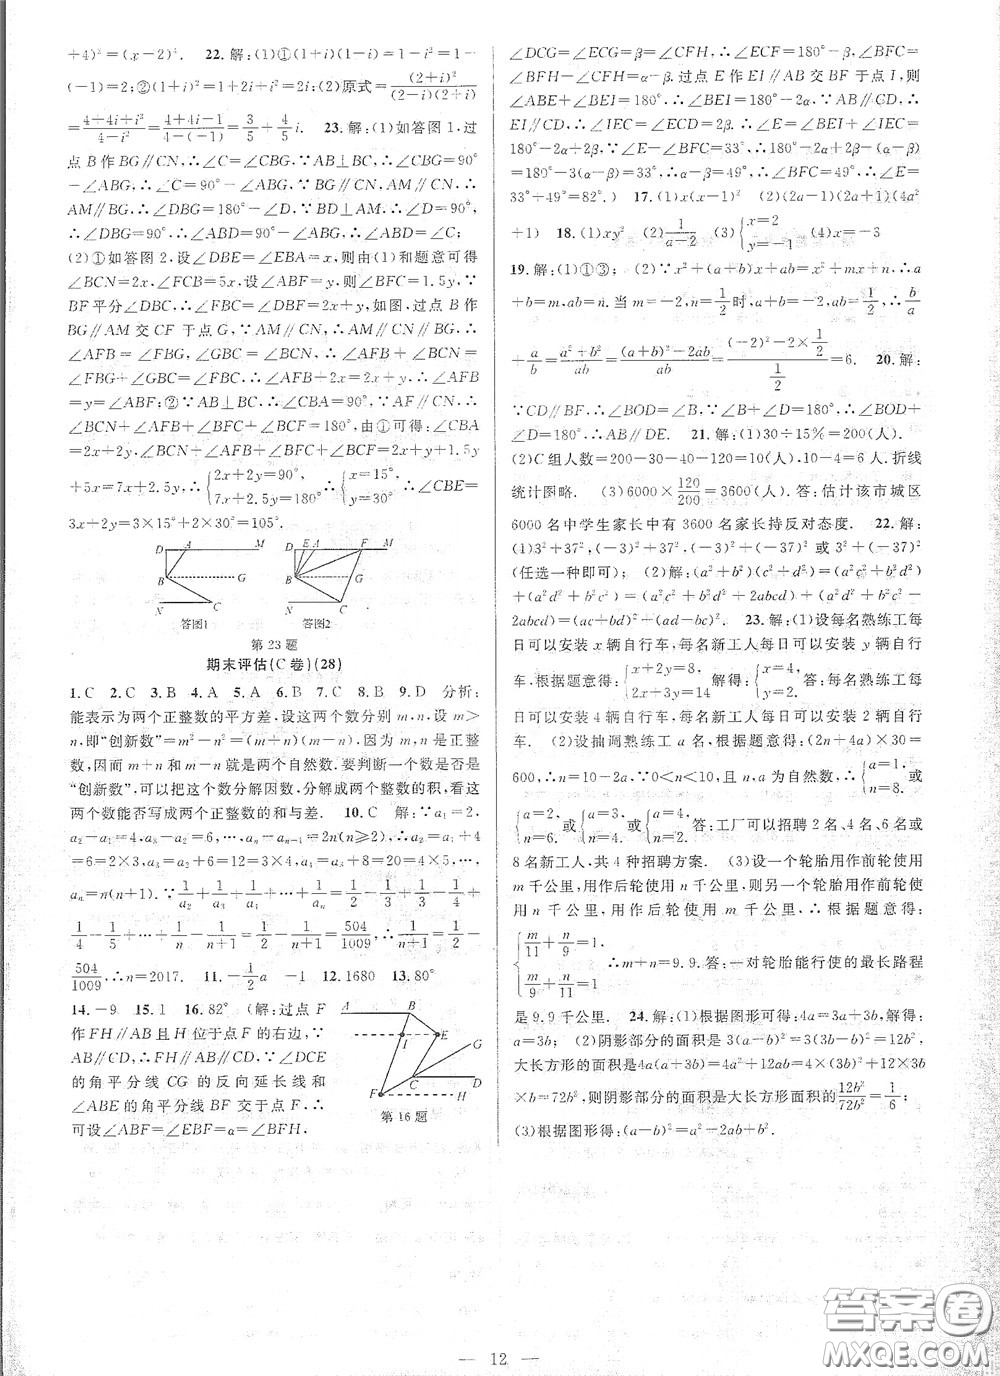 +4)²=(x-2)⁴. 22.解:(1)①(1+i)(1-i)=1-i²=1-
(-1)=2;②(1+i)²=1+2i+i²=2i;(2)原式=(2+i)²/(2-i)(2+i)
=(4+4i+i²)/(4-i²)=(4+4i-1)/(4-(-1))=3/5+4/5i. 23.解:(1)如答图1,过
点B作BG∥CN,∴∠C=∠CBG,∵AB⊥BC,∴∠CBG=90°
-∠ABG,∴∠C=90°-∠ABG,∵BG∥CN,AM∥CN,∴
AM∥BG,∴∠DBG=180°-∠D,∵BD⊥AM,∴∠D=90°,
∴∠DBG=90°,∴∠ABD=90°-∠ABG,∴∠ABD=∠C;
(2)①如答图2,设∠DBE=∠EBA=x,则由(1)和题意可得
∠BCN=2x,∠FCB=5x,设∠ABF=y,则∠BFC=1.5y,∵
BF平分∠DBC,∴∠FBC=∠DBF=2x+y,如图,过点B作
BG∥AM交CF于点G,∵AM∥CN,∴AM∥CN∥BG,∴
∠AFB=∠FBG,∠GBC=∠BCN,∴∠AFB+∠BCN=
∠FBG+∠GBC=∠FBC,∴∠AFB+2x=2x+y,∴∠AFB
=y=∠ABF;②∵AB⊥BC,∴∠CBA=90°,∵AF∥CN,∴
∠BCN+∠AFB+∠BFC+∠BCF=180°,由①可得:∠CBA
=2x+2y,∠BCN+∠AFB+∠BFC+∠BCF=2x+y+1.5y
+5x=7x+2.5y,∴{2x+2y=90°, 7x+2.5y=180°∴{x=15° y=30°.∴∠CBE=
3x+2y=3×15°+2×30°=105°.
D A M B G N C
答图1
D E A F M B G N C
答图2
第23题
期末评估(C卷)(28)
1.C 2.C 3.B 4.A 5.A 6.B 7.C 8.B 9.D 分析:
能表示为两个正整数的平方差,设这两个数分别m,n,设m>
n,即“创新数”=m²-n²=(m+n)(m-n),因为m,n是正整
数,因而m+n和m-n就是两个自然数.要判断一个数是否是
“创新数”,可以把这个数分解因数,分解成两个整数的积,看这
两个数能否写成两个正整数的和与差. 10.C 解:∵a₁=2,
a₂-a₁=4,a₃-a₂=6,⋯,aₙ-aₙ₋₁=2n(n≥2),∴a₂=a₁+4
=6=2×3,a₃=a₂+6=12=3×4,a₄=a₃+8=20=4×5,⋯,
aₙ=n(n+1).∵1/a₂+1/a₃+1/a₄+⋯+1/aₙ=1/2-1/3+1/3-1/4+
1/4-1/5+⋯+1/n-1/(n+1)=504/1009,∴1/2-1/(n+1)=504/1009,∴1/(n+1)=1/2-
504/1009,∴n=2017. 11.-1/2a -1 12.1680 13.80°
14.-9 15.1 16.82° (解:过点F
作FH∥AB且H位于点F的右边,∵
AB∥CD,∴CD∥FH∥AB,∵∠DCE
的角平分线CG的反向延长线和
∠ABE的角平分线BF交于点F,∴
可设∠ABF=∠EBF=α=∠BFH,
A B I E G C D F H
第16题
∠DCG=∠ECG=β=∠CFH,∴∠ECF=180°-β,∠BFC=
∠BFH-∠CFH=α-β,过点E作EI∥AB交BF于点I,则
∠ABE+∠BEI=180°,∴∠BEI=180°-2α,∵AB∥CD,∴
EI∥CD,∴∠IEC=∠ECD=2β,∴∠E=∠BEI+∠IEC=
180°-2α+2β,∵∠E-∠BFC=33°,∴180°-2α+2β-(α-β)
=180°-3(α-β)=33°,∴α-β=49°,∴∠BFC=49°,∴∠E=
33°+49°=82°.) 17.(1)x(x-1)² (2)(2a-1)(2a+1)(4a²
+1) 18.(1)xy² (2)1/(a-2) (3){x=2 y=-1 (4)x=-3
19.解:(1)①③; (2)∵x²+(a+b)x+ab=x²+mx+n,∴a
+b=m,ab=n.当m=-2,n=1/2时,a+b=-2,ab=1/2,∴b/a
+a/b=(a²+b²)/ab=((a+b)²-2ab)/ab=((-2)²-2×1/2)/(1/2)=6. 20.解:
∵CD∥BF,∴∠BOD=∠B,∵∠B+∠D=180°,∴∠BOD+
∠D=180°,∴AB∥DE. 21.解:(1)30÷15%=200(人).
(2)C组人数=200-30-40-120=10(人).10-4=6人.折线
统计图略. (3)6000×120/200=3600(人).答:估计该市城区
6000名中学生家长中有3600名家长持反对态度. 22.解:
(1)3²+37²,(-3)²+37²,(-3)²+(-37)²或3²+(-37)²
(任选一种即可); (2)解:(a²+b²)(c²+d²)=(a²c²+a²d²
+b²c²+b²d²)=(a²c²+b²d²+2abcd)+(a²d²+b²c²-
2abcd)=(ac+bd)²+(ad-bc)². 23.解:(1)设每名熟练工每
日可以安装x辆自行车,每名新工人每日可以安装y辆自行
车,根据题意得:{x+2y=8, 2x+3y=14解得:{x=4, y=2.答:每名熟练工每日
可以安装4辆自行车,每名新工人每日可以安装2辆自行
车. (2)设抽调熟练工a名,根据题意得:(2n+4a)×30=
600,∴n=10-2a,∵0<n<10,且n,a为自然数,∴{a=1, n=8.或
{a=2, n=6.或{a=3, n=4.或{a=4, n=2.答:工厂可以招聘2名、4名、6名或
8名新工人,共4种招聘方案. (3)设一个轮胎用作前轮使用
m千公里,用作后轮使用n千公里,则另一个轮胎用作前轮使
用n千公里,用作后轮使用m千公里,∴根据题意得:
{m/11+n/9=1, m/9+n/11=1∴m+n=9.9.答:一对轮胎能行使的最长路程
是9.9千公里. 24.解:(1)根据图形可得:4a=3a+3b,解得:
a=3b; (2)阴影部分的面积是3(a-b)²=3(3b-b)²=12b²,
大长方形的面积是4a(a+3b)=4a²+12ab=4×(3b)²+12×3b
×b=72b²,则阴影部分的面积是大长方形面积的12b²/72b²=1/6;
(3)根据图形得:(a-b)²=a²-2ab+b².
— 12 —
答案卷
MXQE.COM